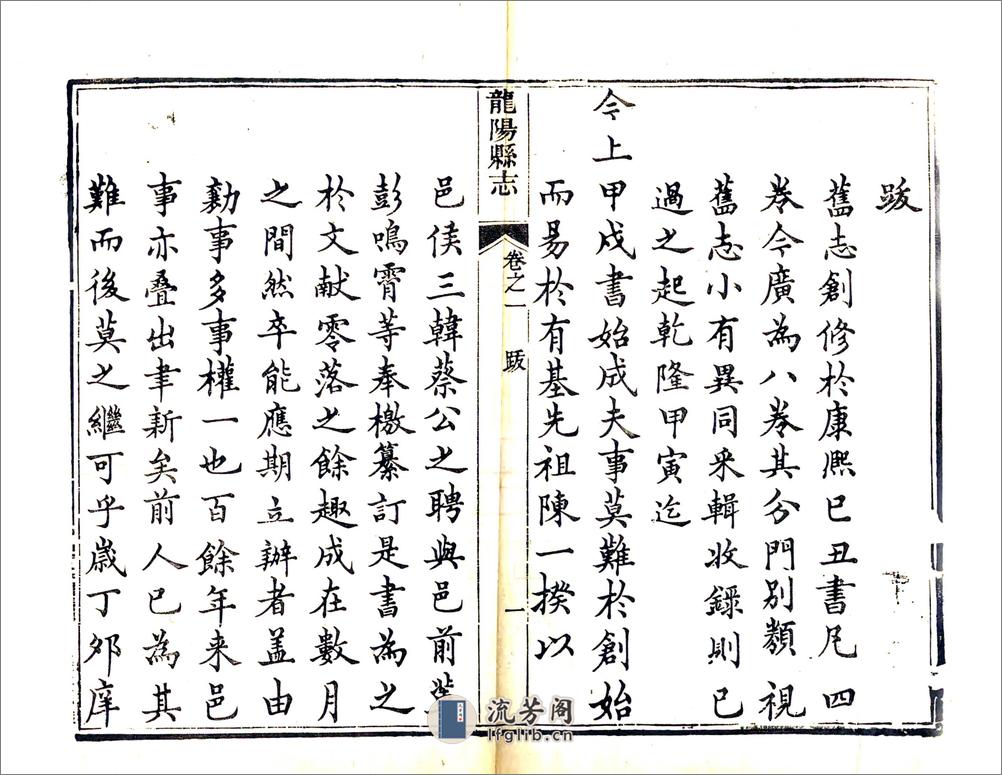 跋
舊志創修於康熙己丑書凡四
卷今廣為八卷其分門別類視
舊志小有異同采輯收錄則已
過之起乾隆甲寅迄
今上甲戌書始成夫事莫難於創始
而易於有基先祖陳一揆以
龍陽縣志
卷之一
跋
一
邑侯三韓蔡公之聘與邑前
彭鳴霄等奉檄纂訂是書為之
於文献零落之餘趣成在數月
之間然卒能應期立辦者盖由
勷事多事權一也百餘年来邑
事亦叠出聿新矣前人已為其
難而後莫之繼可乎歲丁夘庠
流芳阁
lfglib.cn